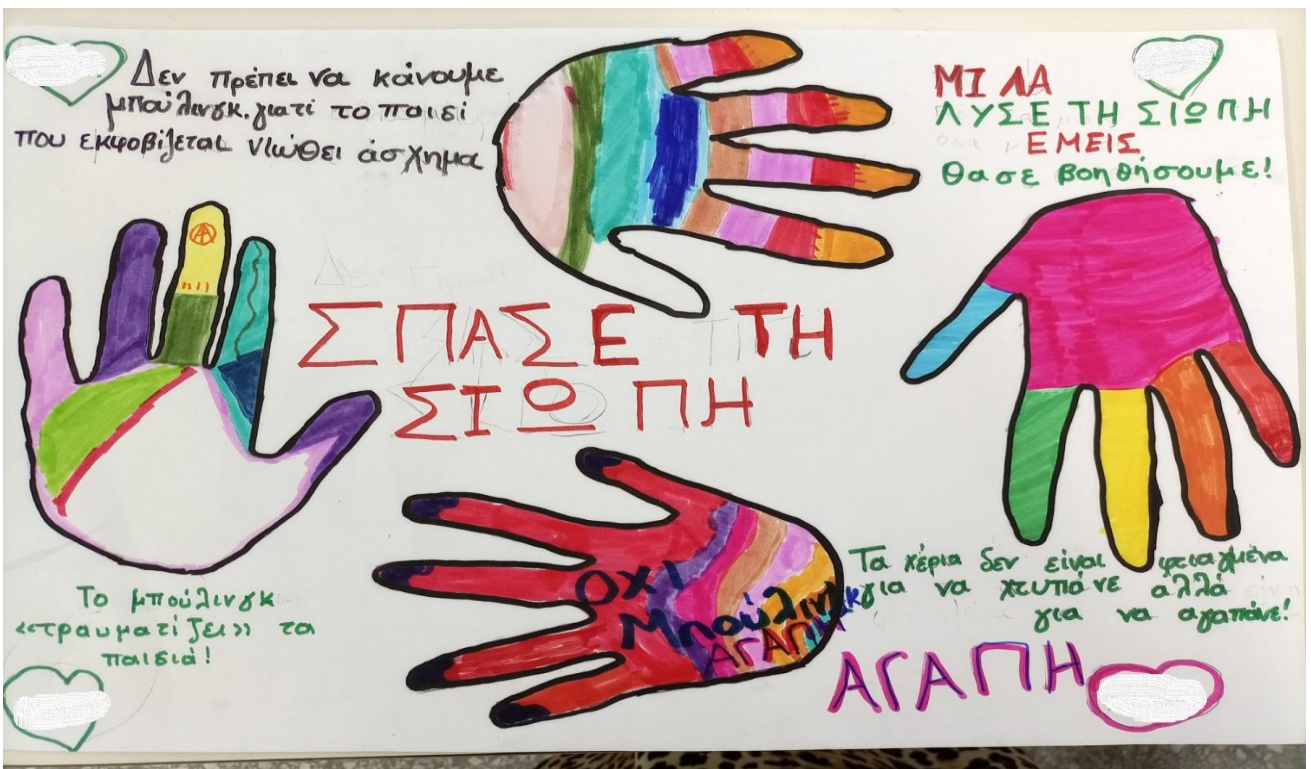 Δεν πρέπει να κάνουμε
μπούλινγκ. γιατί το παιδί
που εκφοβίζεται νιώθει άσχημα
ΜΙΛΑ
ΛΥΣΕ ΤΗ ΣΙΩΠΗ
ΕΜΕΙΣ
Θα σε βοηθήσουμε!
ΣΠΑΣΕ ΤΗ
ΣΙΩΠΗ
Το μπούλινγκ
«τραυματίζει» τα
παιδιά!
ΟΧΙ
Μπούλινγκ
ΑΓΑΠΗ
Τα χέρια δεν είναι φτιαγμένα
για να χτυπάνε αλλά
για να αγαπάνε!
ΑΓΑΠΗ